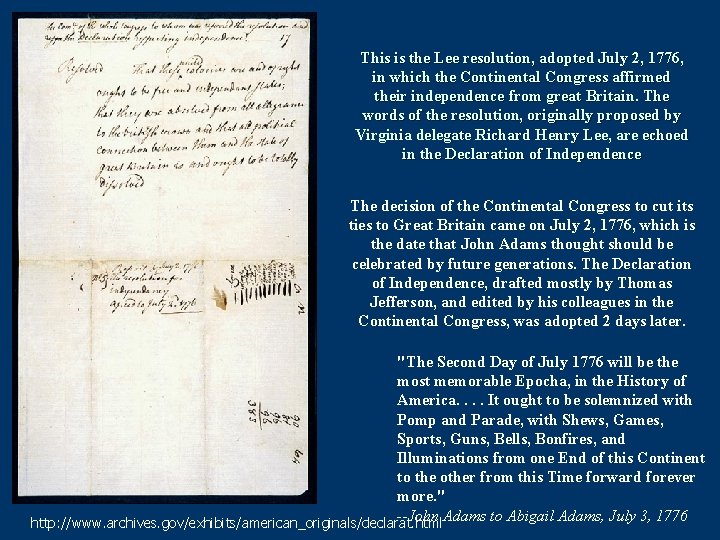 17
Resolved That these united colonies are and of right
ought to be free and independant States;
that they are absolved from all allegiance
to the british crown and that all political
connection between them and the state of
great Britain is and ought to be totally
dissolved
the resolution for
independancy
agreed to July 2. 1776
This is the Lee resolution, adopted July 2, 1776,
in which the Continental Congress affirmed
their independence from great Britain. The
words of the resolution, originally proposed by
Virginia delegate Richard Henry Lee, are echoed
in the Declaration of Independence
The decision of the Continental Congress to cut its
ties to Great Britain came on July 2, 1776, which is
the date that John Adams thought should be
celebrated by future generations. The Declaration
of Independence, drafted mostly by Thomas
Jefferson, and edited by his colleagues in the
Continental Congress, was adopted 2 days later.
"The Second Day of July 1776 will be the
most memorable Epocha, in the History of
America. . . . It ought to be solemnized with
Pomp and Parade, with Shews, Games,
Sports, Guns, Bells, Bonfires, and
Illuminations from one End of this Continent
to the other from this Time forward forever
more."
--John Adams to Abigail Adams, July 3, 1776
http://www.archives.gov/exhibits/american_originals/declarat.html